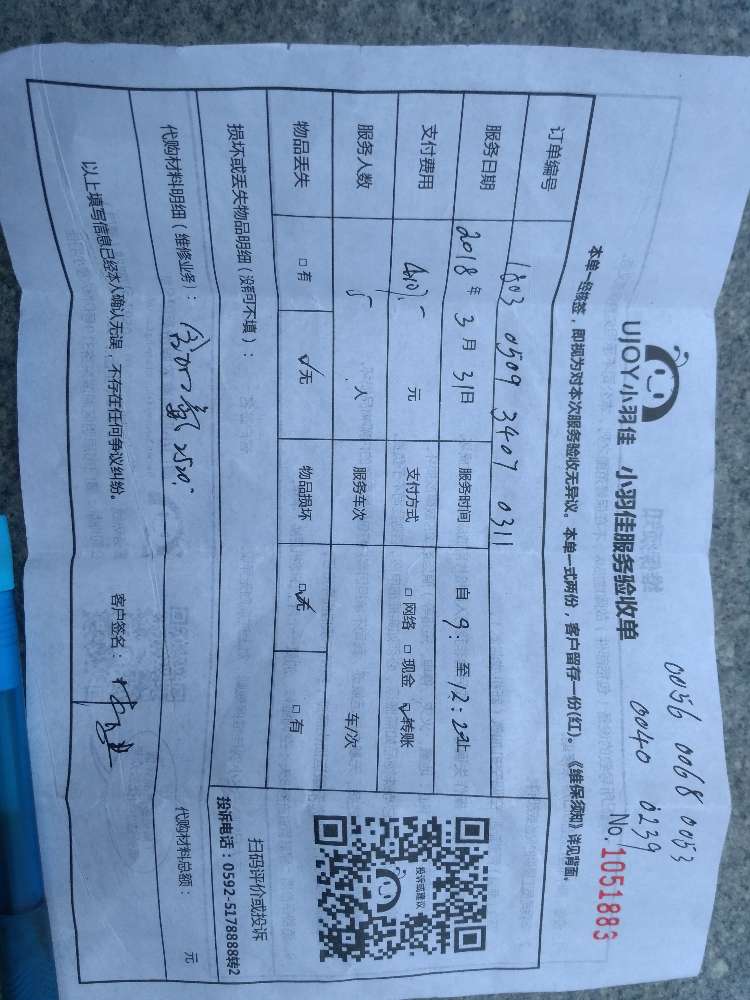 0056 0068 0053
0040 0239
UJOY小羽佳 小羽佳服务验收单
No. 1051883
本单一经核签，即视为对本次服务验收无异议。本单一式两份，客户留存一份(红)。《维保须知》详见背面。
订单编号 1803 0509 3407 0311
服务日期 2018年3月31日 服务时间 自9: 至12:20止
支付费用 元 支付方式 □网络 □现金 ☑转账
服务人数 5人 服务车次 车/次
物品丢失 □有 ☑无 物品损坏 ☑无 □有
损坏或丢失物品明细（没有可不填）：
代购材料明细（维修业务）： 2520. 代购材料总额： 元
以上填写信息已经本人确认无误，不存在任何争议纠纷。 客户签名：
投诉或建议
扫码评价或投诉
投诉电话：0592-5178888转2